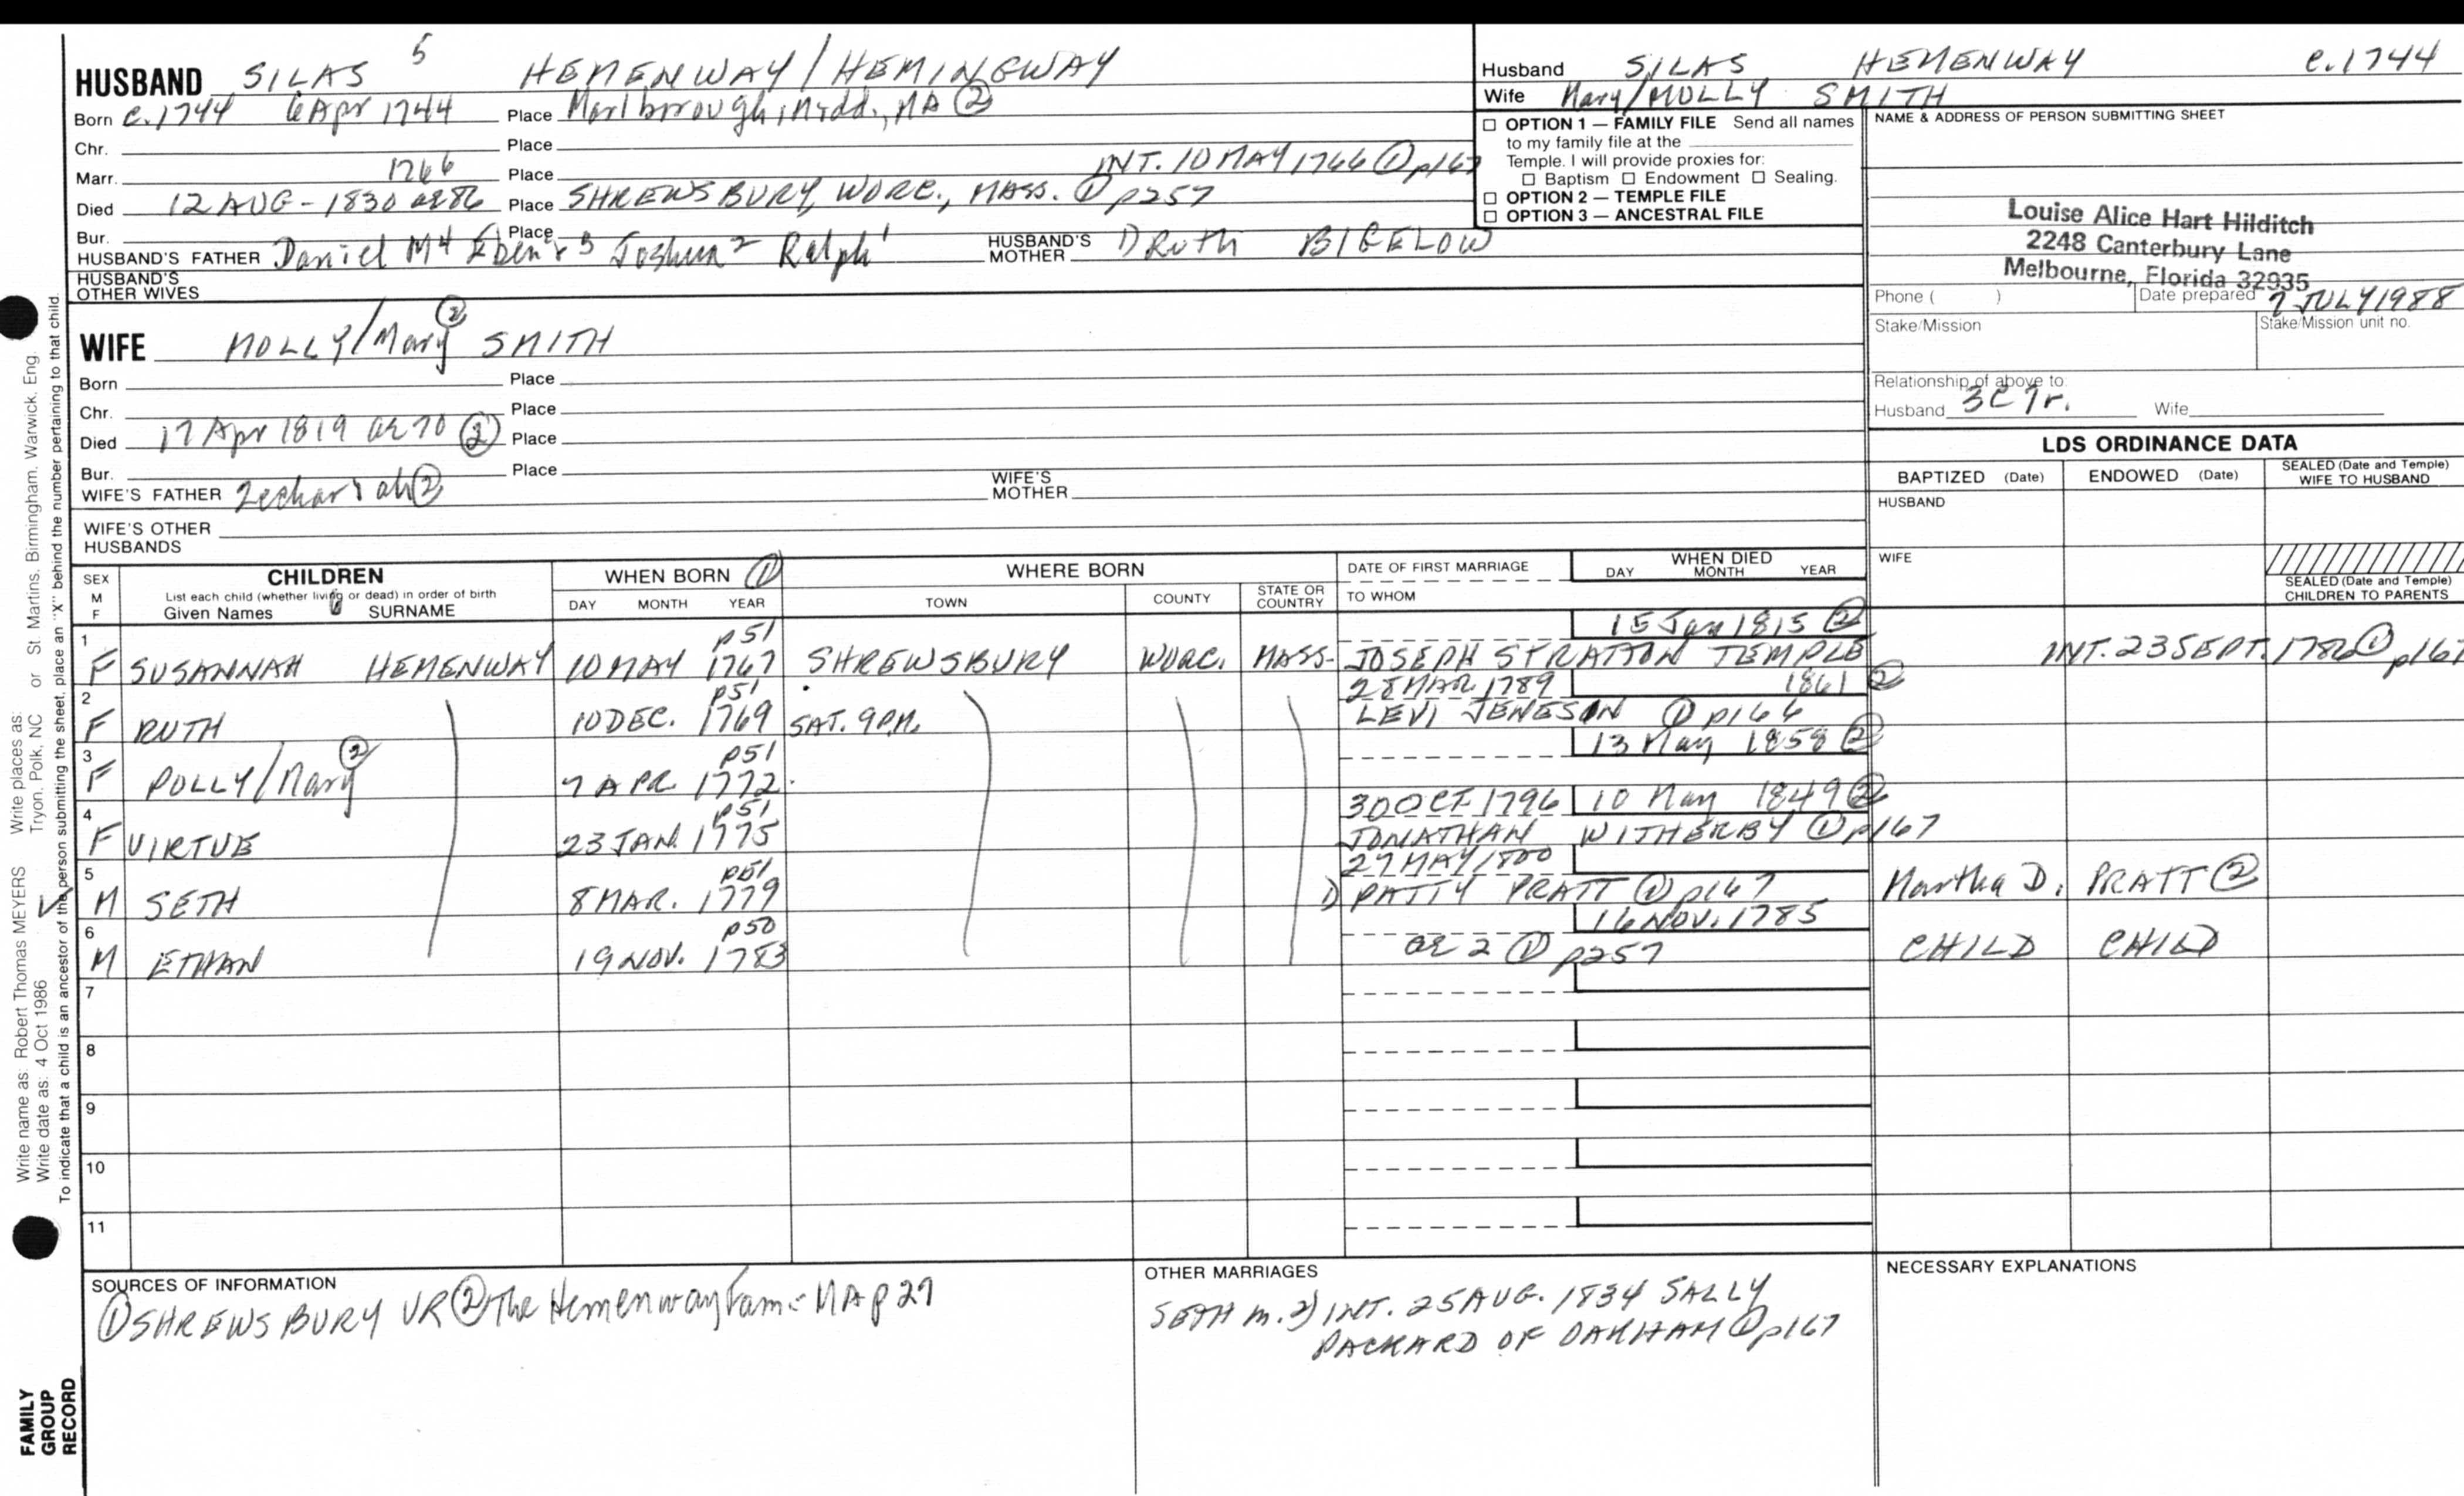 HUSBAND SILAS 5 HEMENWAY/HEMINGWAY
Born c.1744 6 Apr 1744 Place Marlborough, Midd., MA ②
Chr. Place
Marr. 1766 Place INT. 10 MAY 1766 ① p167
Died 12 AUG - 1830 ae 86 Place SHREWSBURY, WORC., MASS. ① p257
Bur. Place
HUSBAND'S FATHER Daniel M4 Ebenr3 Joshua2 Ralph1 HUSBAND'S MOTHER 1) Ruth BIGELOW
HUSBAND'S OTHER WIVES
Husband SILAS HEMENWAY c.1744
Wife Mary/MOLLY SMITH
☐ OPTION 1 — FAMILY FILE Send all names
to my family file at the
Temple. I will provide proxies for:
☐ Baptism ☐ Endowment ☐ Sealing.
☐ OPTION 2 — TEMPLE FILE
☐ OPTION 3 — ANCESTRAL FILE
NAME & ADDRESS OF PERSON SUBMITTING SHEET
Louise Alice Hart Hilditch
2248 Canterbury Lane
Melbourne, Florida 32935
Phone ( ) Date prepared 7 JULY 1988
Stake/Mission Stake/Mission unit no.
Relationship of above to:
Husband 3C7r. Wife
WIFE MOLLY/Mary ② SMITH
Born Place
Chr. Place
Died 17 Apr 1819 ae 70 ② Place
Bur. Place
WIFE'S FATHER Zechariah ② WIFE'S MOTHER
WIFE'S OTHER HUSBANDS
LDS ORDINANCE DATA
BAPTIZED (Date) ENDOWED (Date) SEALED (Date and Temple) WIFE TO HUSBAND
HUSBAND
WIFE
SEALED (Date and Temple) CHILDREN TO PARENTS
SEX M F CHILDREN List each child (whether living or dead) in order of birth Given Names SURNAME
WHEN BORN ① DAY MONTH YEAR
WHERE BORN TOWN COUNTY STATE OR COUNTRY
DATE OF FIRST MARRIAGE TO WHOM
WHEN DIED DAY MONTH YEAR
1 p51 15 Jan 1815 ②
F SUSANNAH HEMENWAY 10 MAY 1767 SHREWSBURY WORC. MASS. JOSEPH STRATTON TEMPLE INT. 23 SEPT. 1786 ① p167
2 p51 28 MAR 1789 1861 ②
F RUTH 10 DEC. 1769 SAT. 9 P.M. LEVI JENESON ① p166
3 p51 13 May 1858 ②
F POLLY/Mary ② 7 APR. 1772
4 p51 30 OCT 1796 10 May 1849 ②
F VIRTUE 23 JAN. 1775 JONATHAN WITHERBY ① p167
5 p51 27 MAY 1800
M SETH 8 MAR. 1779 1) PATTY PRATT ① p167 Martha D. PRATT ②
6 p50 16 NOV. 1785
M ETHAN 19 NOV. 1783 ae 2 ① p257 CHILD CHILD
7
8
9
10
11
SOURCES OF INFORMATION
① SHREWSBURY VR ② The Hemenway Fam - MA p 27
OTHER MARRIAGES
SETH m. 2) INT. 25 AUG. 1834 SALLY
PACKARD OF OAKHAM ① p167
NECESSARY EXPLANATIONS
Write name as: Robert Thomas MEYERS Write places as: Tryon, Polk, NC or St. Martins, Birmingham, Warwick, Eng.
Write date as: 4 Oct 1986
To indicate that a child is an ancestor of the person submitting the sheet, place an "X" behind the number pertaining to that child.
FAMILY
GROUP
RECORD